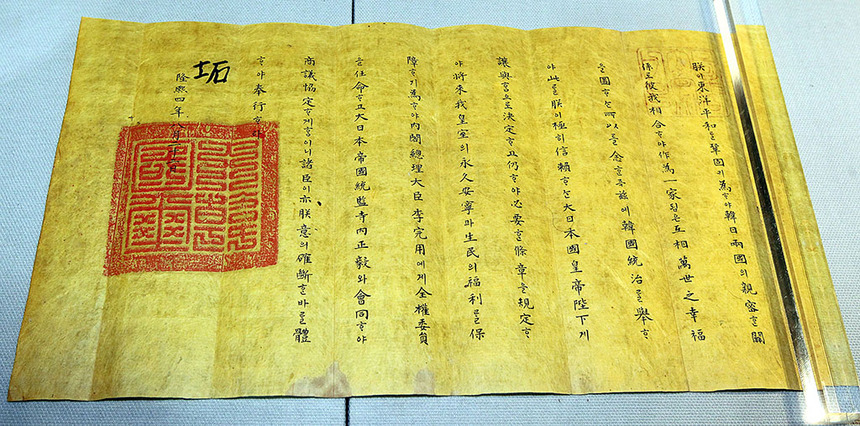 朕이東洋平和를鞏固히爲ᄒᆞ야韓日兩國의親密ᄒᆞᆫ關
係로彼我相合ᄒᆞ야作爲一家됨은互相萬世之幸福
을圖ᄒᆞᄂᆞᆫ所以를念ᄒᆞᆫ즉玆에韓國統治를擧ᄒᆞ
야此를朕이極히信賴ᄒᆞᄂᆞᆫ大日本國皇帝陛下게
讓與ᄒᆞᆷ으로決定ᄒᆞ고仍ᄒᆞ야必要ᄒᆞᆫ條章을規定ᄒᆞ
야將來我皇室의永久安寧과生民의福利를保
障ᄒᆞ기爲ᄒᆞ야內閣總理大臣李完用에게全權委員
을任命ᄒᆞ고大日本帝國統監寺內正毅와會同ᄒᆞ야
商議協定ᄒᆞ게ᄒᆞ이니諸臣이亦朕意의確斷ᄒᆞᆫ바를體
ᄒᆞ야奉行ᄒᆞ라
坧
隆熙四年